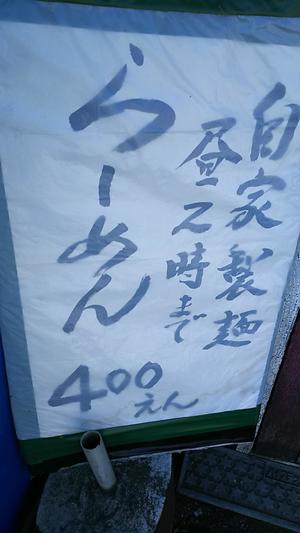 自家製麺
昼二時まで
らーめん
400えん